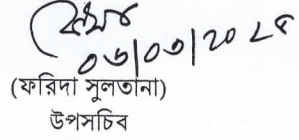 ০৬/০৩/২০২৪
(ফরিদা সুলতানা)
উপসচিব